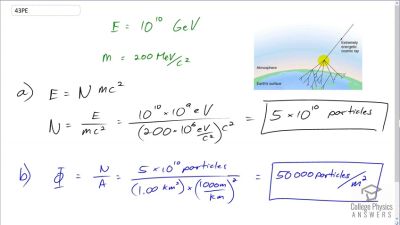 43PE
E = 10^10 GeV
m = 200 MeV/c²
Extremely energetic cosmic ray
Atmosphere
Earth's surface
a) E = N mc²
N = E/mc² = 10^10 × 10^9 eV / (200 × 10^6 eV/c²) c² = 5 × 10^10 particles
b) Φ = N/A = 5 × 10^10 particles / (1.00 km²) × (1000m/km)² = 50000 particles/m²
College Physics
ANSWERS